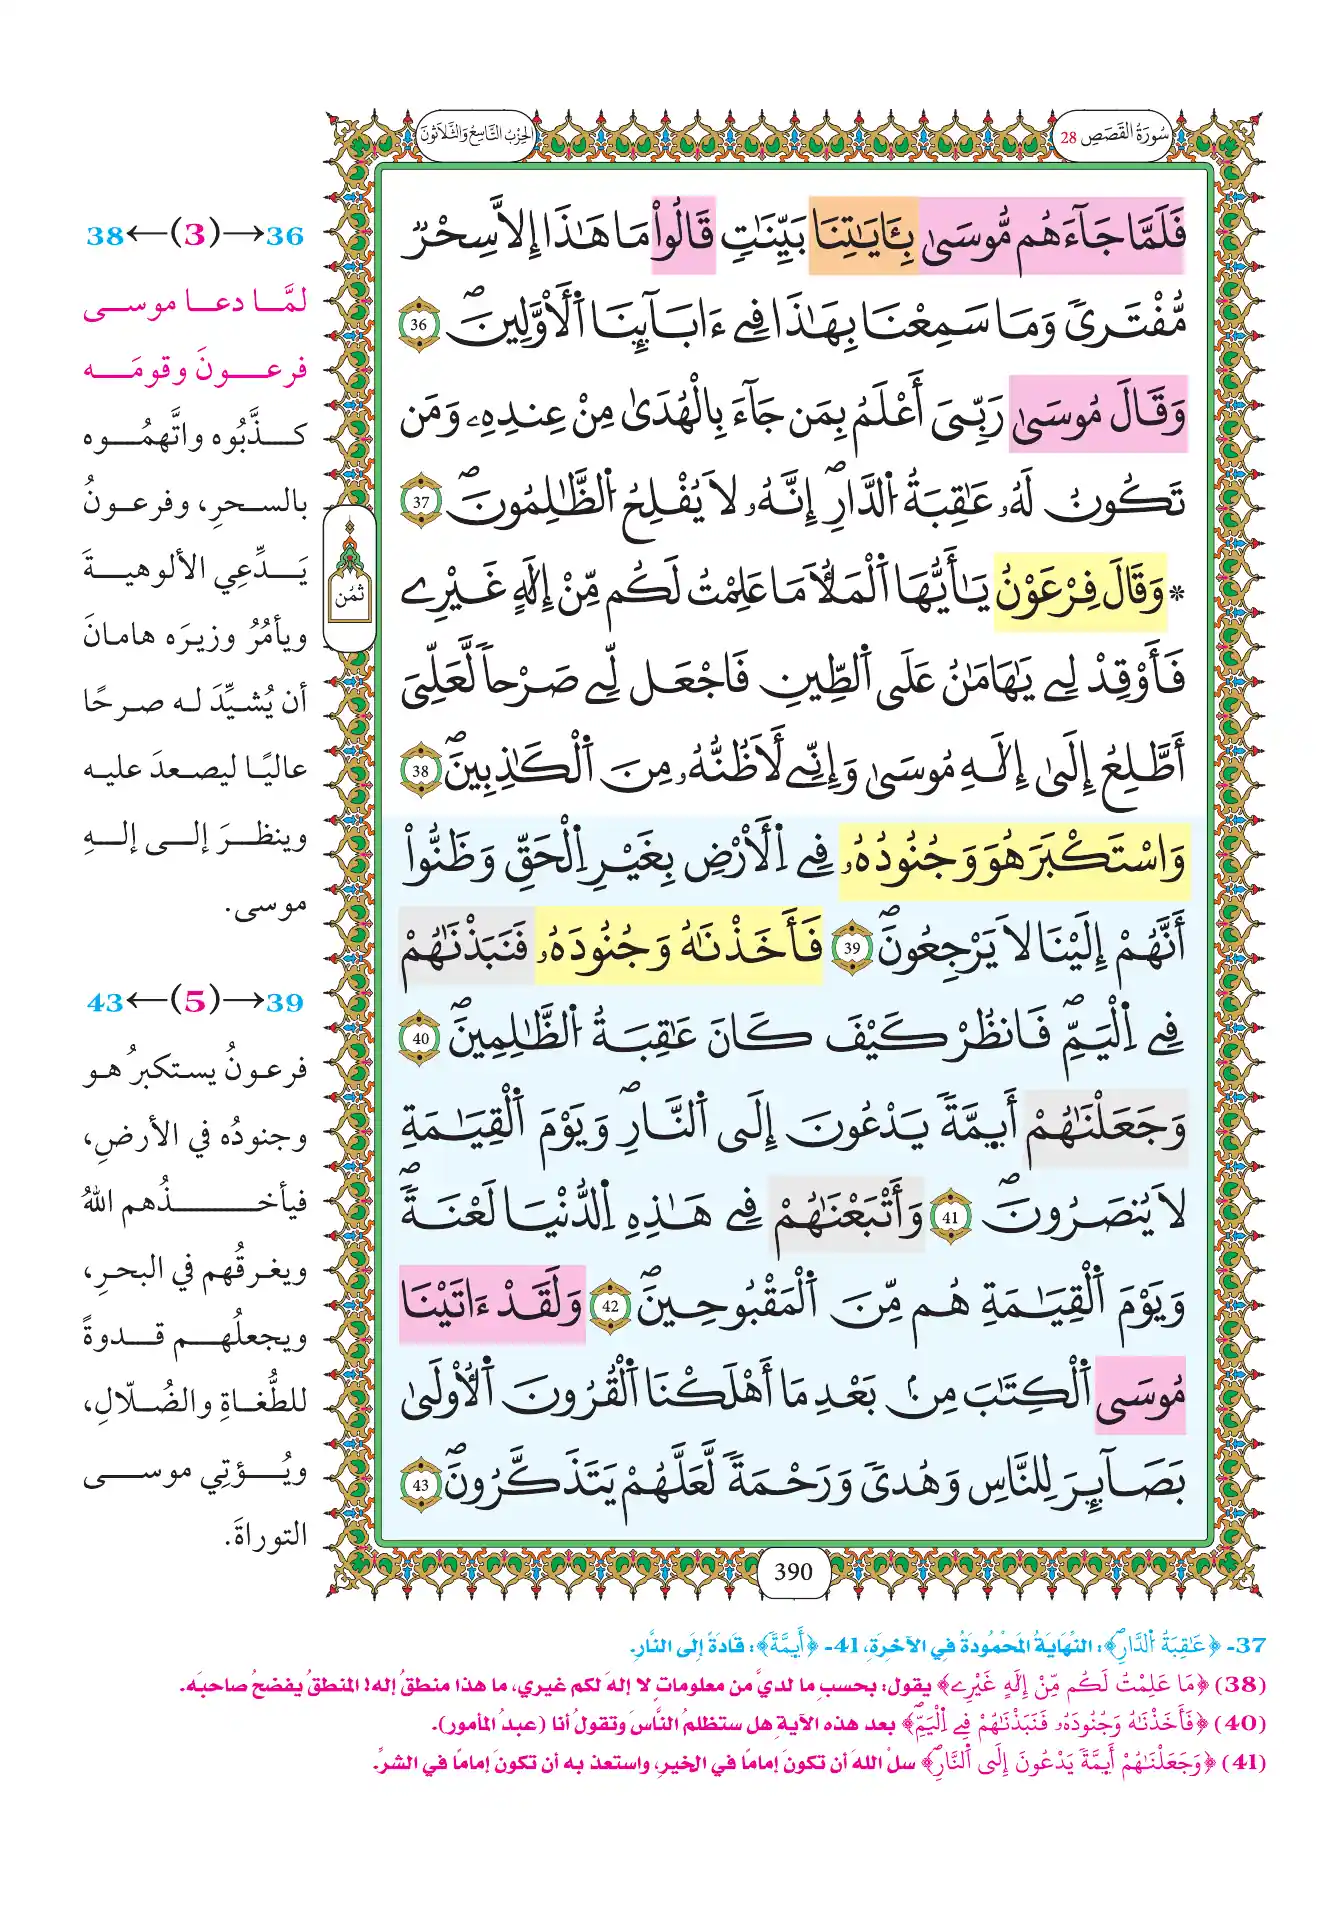 سُورَةُ القَصَصِ 28
الحِزْبُ التَّاسِعُ وَالثَّلَاثُونَ
فَلَمَّا جَآءَهُم مُّوسَىٰ بِـَٔايَـٰتِنَا بَيِّنَـٰتٖ قَالُواْ مَا هَـٰذَا إِلَّا سِحْرٞ
مُّفْتَرٗى وَمَا سَمِعْنَا بِهَـٰذَا فِے ءَابَآئِنَا اَ۬لْأَوَّلِينَۖ 36
وَقَالَ مُوسَىٰ رَبِّيَ أَعْلَمُ بِمَن جَآءَ بِالْهُدَىٰ مِنْ عِندِهِۦ وَمَن
تَكُونُ لَهُۥ عَـٰقِبَةُ اُ۬لدّ۪ارِۖ إِنَّهُۥ لَا يُفْلِحُ اُ۬لظَّـٰلِمُونَۖ 37
۞ وَقَالَ فِرْعَوْنُ يَـٰٓأَيُّهَا اَ۬لْمَلَأُ مَا عَلِمْتُ لَكُم مِّنْ إِلَـٰهٍ غَيْرِے
فَأَوْقِدْ لِے يَـٰهَـٰمَـٰنُ عَلَى اَ۬لطِّينِ فَاجْعَل لِّے صَرْحاٗ لَّعَلِّيَ
أَطَّلِعُ إِلَىٰ إِلَـٰهِ مُوسَىٰ وَإِنِّے لَأَظُنُّهُۥ مِنَ اَ۬لْكَـٰذِبِينَۖ 38
وَاسْتَكْبَرَ هُوَ وَجُنُودُهُۥ فِے اِ۬لْأَرْضِ بِغَيْرِ اِ۬لْحَقِّ وَظَنُّواْ
أَنَّهُمْ إِلَيْنَا لَا يَرْجِعُونَۖ 39 فَأَخَذْنَـٰهُ وَجُنُودَهُۥ فَنَبَذْنَـٰهُمْ
فِے اِ۬لْيَمِّۖ فَانظُرْ كَيْفَ كَانَ عَـٰقِبَةُ اُ۬لظَّـٰلِمِينَۖ 40
وَجَعَلْنَـٰهُمْ أَئِمَّةٗ يَدْعُونَ إِلَى اَ۬لنّ۪ارِۖ وَيَوْمَ اَ۬لْقِيَـٰمَةِ
لَا يُنصَرُونَۖ 41 وَأَتْبَعْنَـٰهُمْ فِے هَـٰذِهِ اِ۬لدُّنْيَا لَعْنَةٗۖ
وَيَوْمَ اَ۬لْقِيَـٰمَةِ هُم مِّنَ اَ۬لْمَقْبُوحِينَۖ 42 وَلَقَدْ ءَاتَيْنَا
مُوسَى اَ۬لْكِتَـٰبَ مِنۢ بَعْدِ مَا أَهْلَكْنَا اَ۬لْقُرُونَ اَ۬لْأُولَىٰ
بَصَآئِرَ لِلنَّاسِ وَهُدٗى وَرَحْمَةٗ لَّعَلَّهُمْ يَتَذَكَّرُونَۖ 43
ثُمُن
390
36→(3)←38
لمَّا دعا موسى
فرعونَ وقومَه
كذَّبُوه واتَّهمُوه
بالسحرِ، وفرعونُ
يَدَّعِي الألوهيةَ
ويأمُرُ وزيرَه هامانَ
أن يُشيِّدَ له صرحًا
عاليًا ليصعدَ عليه
وينظرَ إلى إلهِ
موسى.
39→(5)←43
فرعونُ يستكبرُ هو
وجنودُه في الأرضِ،
فيأخذُهم اللهُ
ويغرقُهم في البحرِ،
ويجعلُهم قدوةً
للطُّغاةِ والضُّلّالِ،
ويُؤتِي موسى
التوراةَ.
37- ﴿عَـٰقِبَةُ اُ۬لدّ۪ارِۖ﴾: النِّهَايَةُ المَحْمُودَةُ فِي الآخِرَةِ، 41- ﴿أَئِمَّةٗ﴾: قَادَةً إِلَى النَّارِ.
(38) ﴿مَا عَلِمْتُ لَكُم مِّنْ إِلَـٰهٍ غَيْرِے﴾ يقول: بحسبِ ما لديَّ من معلوماتٍ لا إلهَ لكم غيري، ما هذا منطقُ إله! المنطقُ يفضحُ صاحبَه.
(40) ﴿فَأَخَذْنَـٰهُ وَجُنُودَهُۥ فَنَبَذْنَـٰهُمْ فِے اِ۬لْيَمِّۖ﴾ بعد هذه الآية هل ستظلمُ النَّاسَ وتقولُ أنا (عبدُ المأمور).
(41) ﴿وَجَعَلْنَـٰهُمْ أَئِمَّةٗ يَدْعُونَ إِلَى اَ۬لنّ۪ارِۖ﴾ سلْ اللهَ أن تكونَ إمامًا في الخيرِ، واستعذ به أن تكونَ إمامًا في الشرِّ.